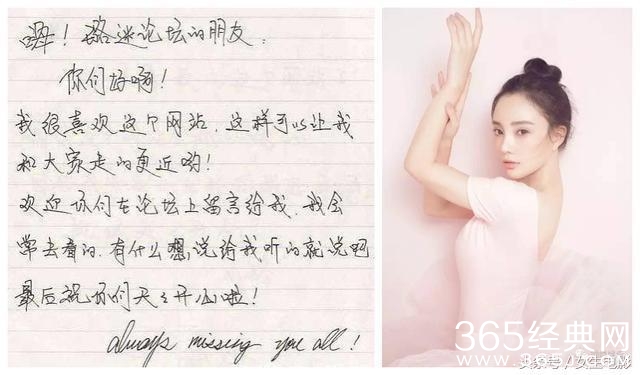 嗨！璐迷论坛的朋友：
你们好啊！
我很喜欢这个网站，这样可以让我
和大家走的更近哟！
欢迎你们在论坛上留言给我，我会
常去看的，有什么想说给我听的就说吧
最后祝你们天天开心啦！
always missing you all！
365经典网
www.365
头条号/女生电影